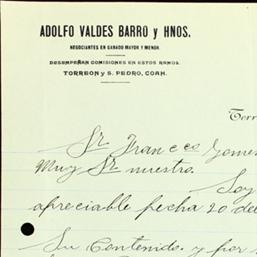 ADOLFO VALDES BARRO y HNOS.
NEGOCIANTES EN GANADO MAYOR Y MENOR.
DESEMPEÑAN COMISIONES EN ESTOS RAMOS.
TORREON y S. PEDRO, COAH.
Torr
Sr Franc co Gomez
Muy Sr nuestro.
Soy
apreciable fecha 20 del
Su Contenido y por